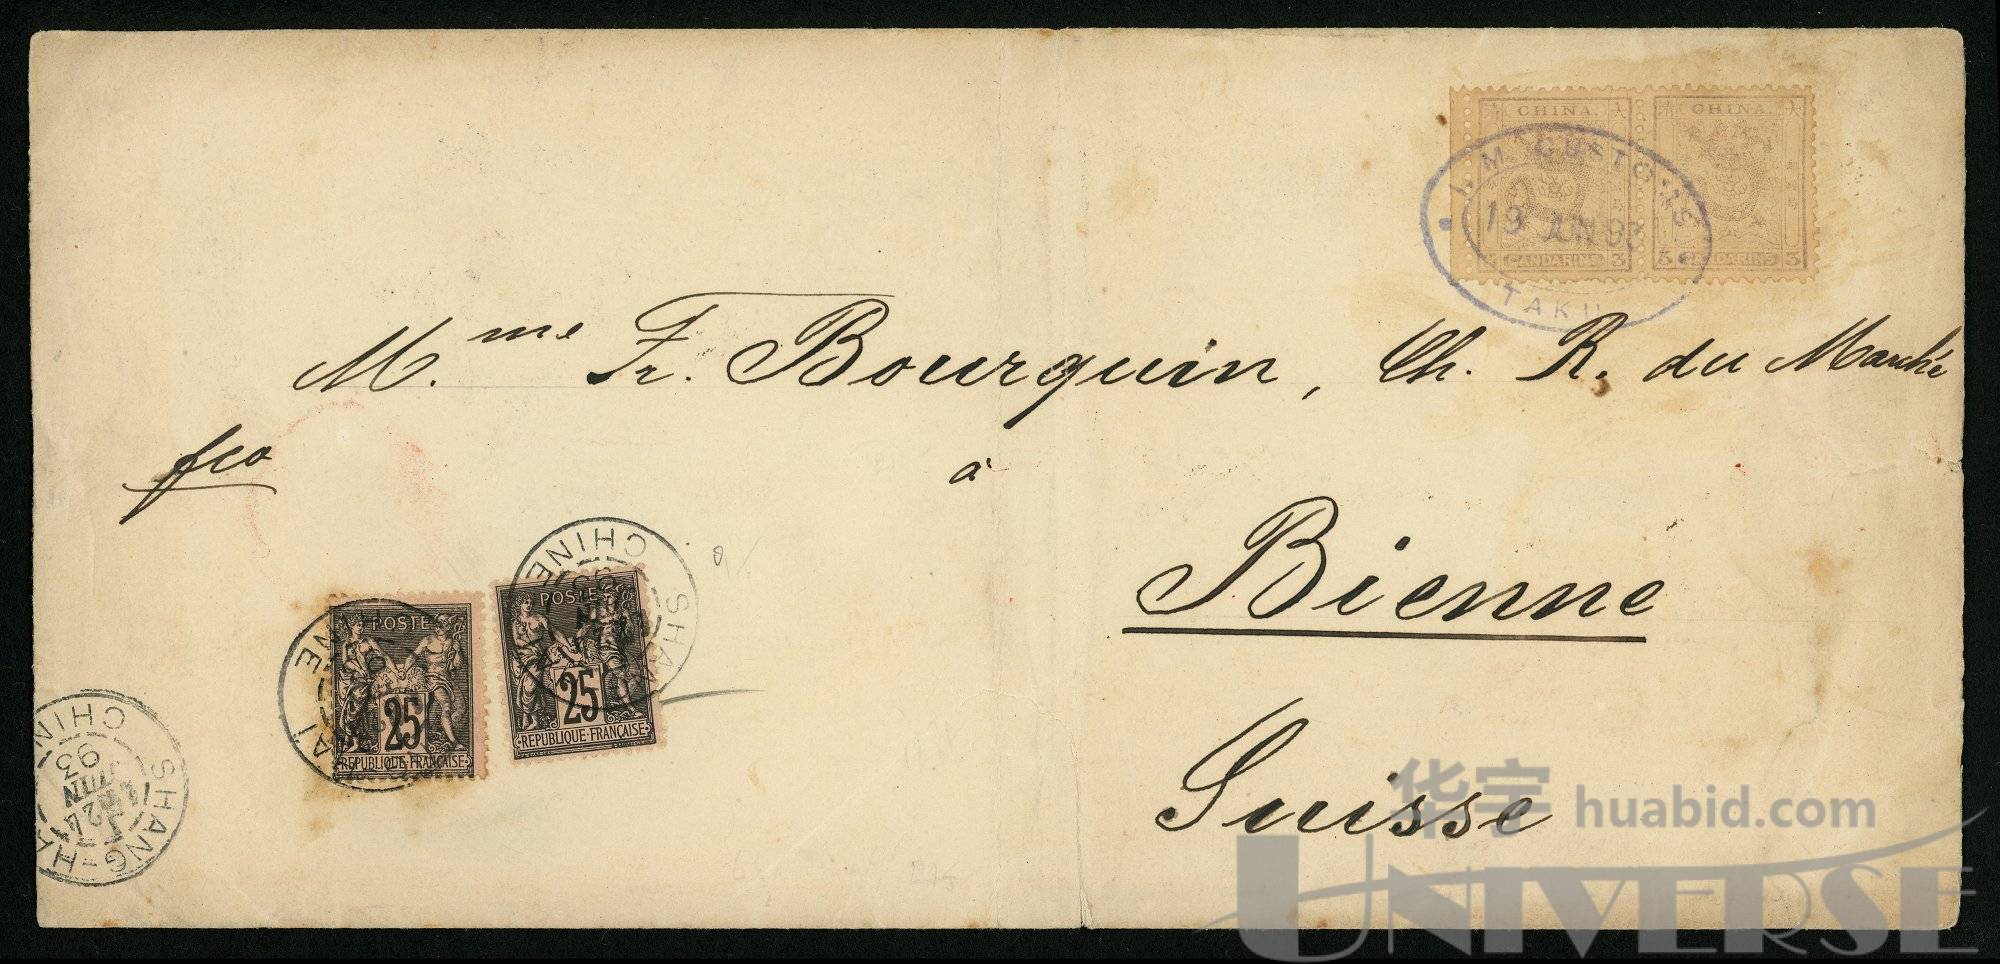 CHINA. CHINA.
3 CANDARINS 3 3 CANDARINS 3
I. M. CUSTOMS
19 JUN 93
TAKU
M.me Fr. Bourquin, Ch. R. du Marché
fco
à
Bienne
Suisse
SHANG-HAI
CHINE
POSTE
25
REPUBLIQUE FRANÇAISE
POSTE
25
REPUBLIQUE FRANÇAISE
SHANG-HAI
CHINE
24
JUIN
93
华宇 huabid.com
UNIVERSE